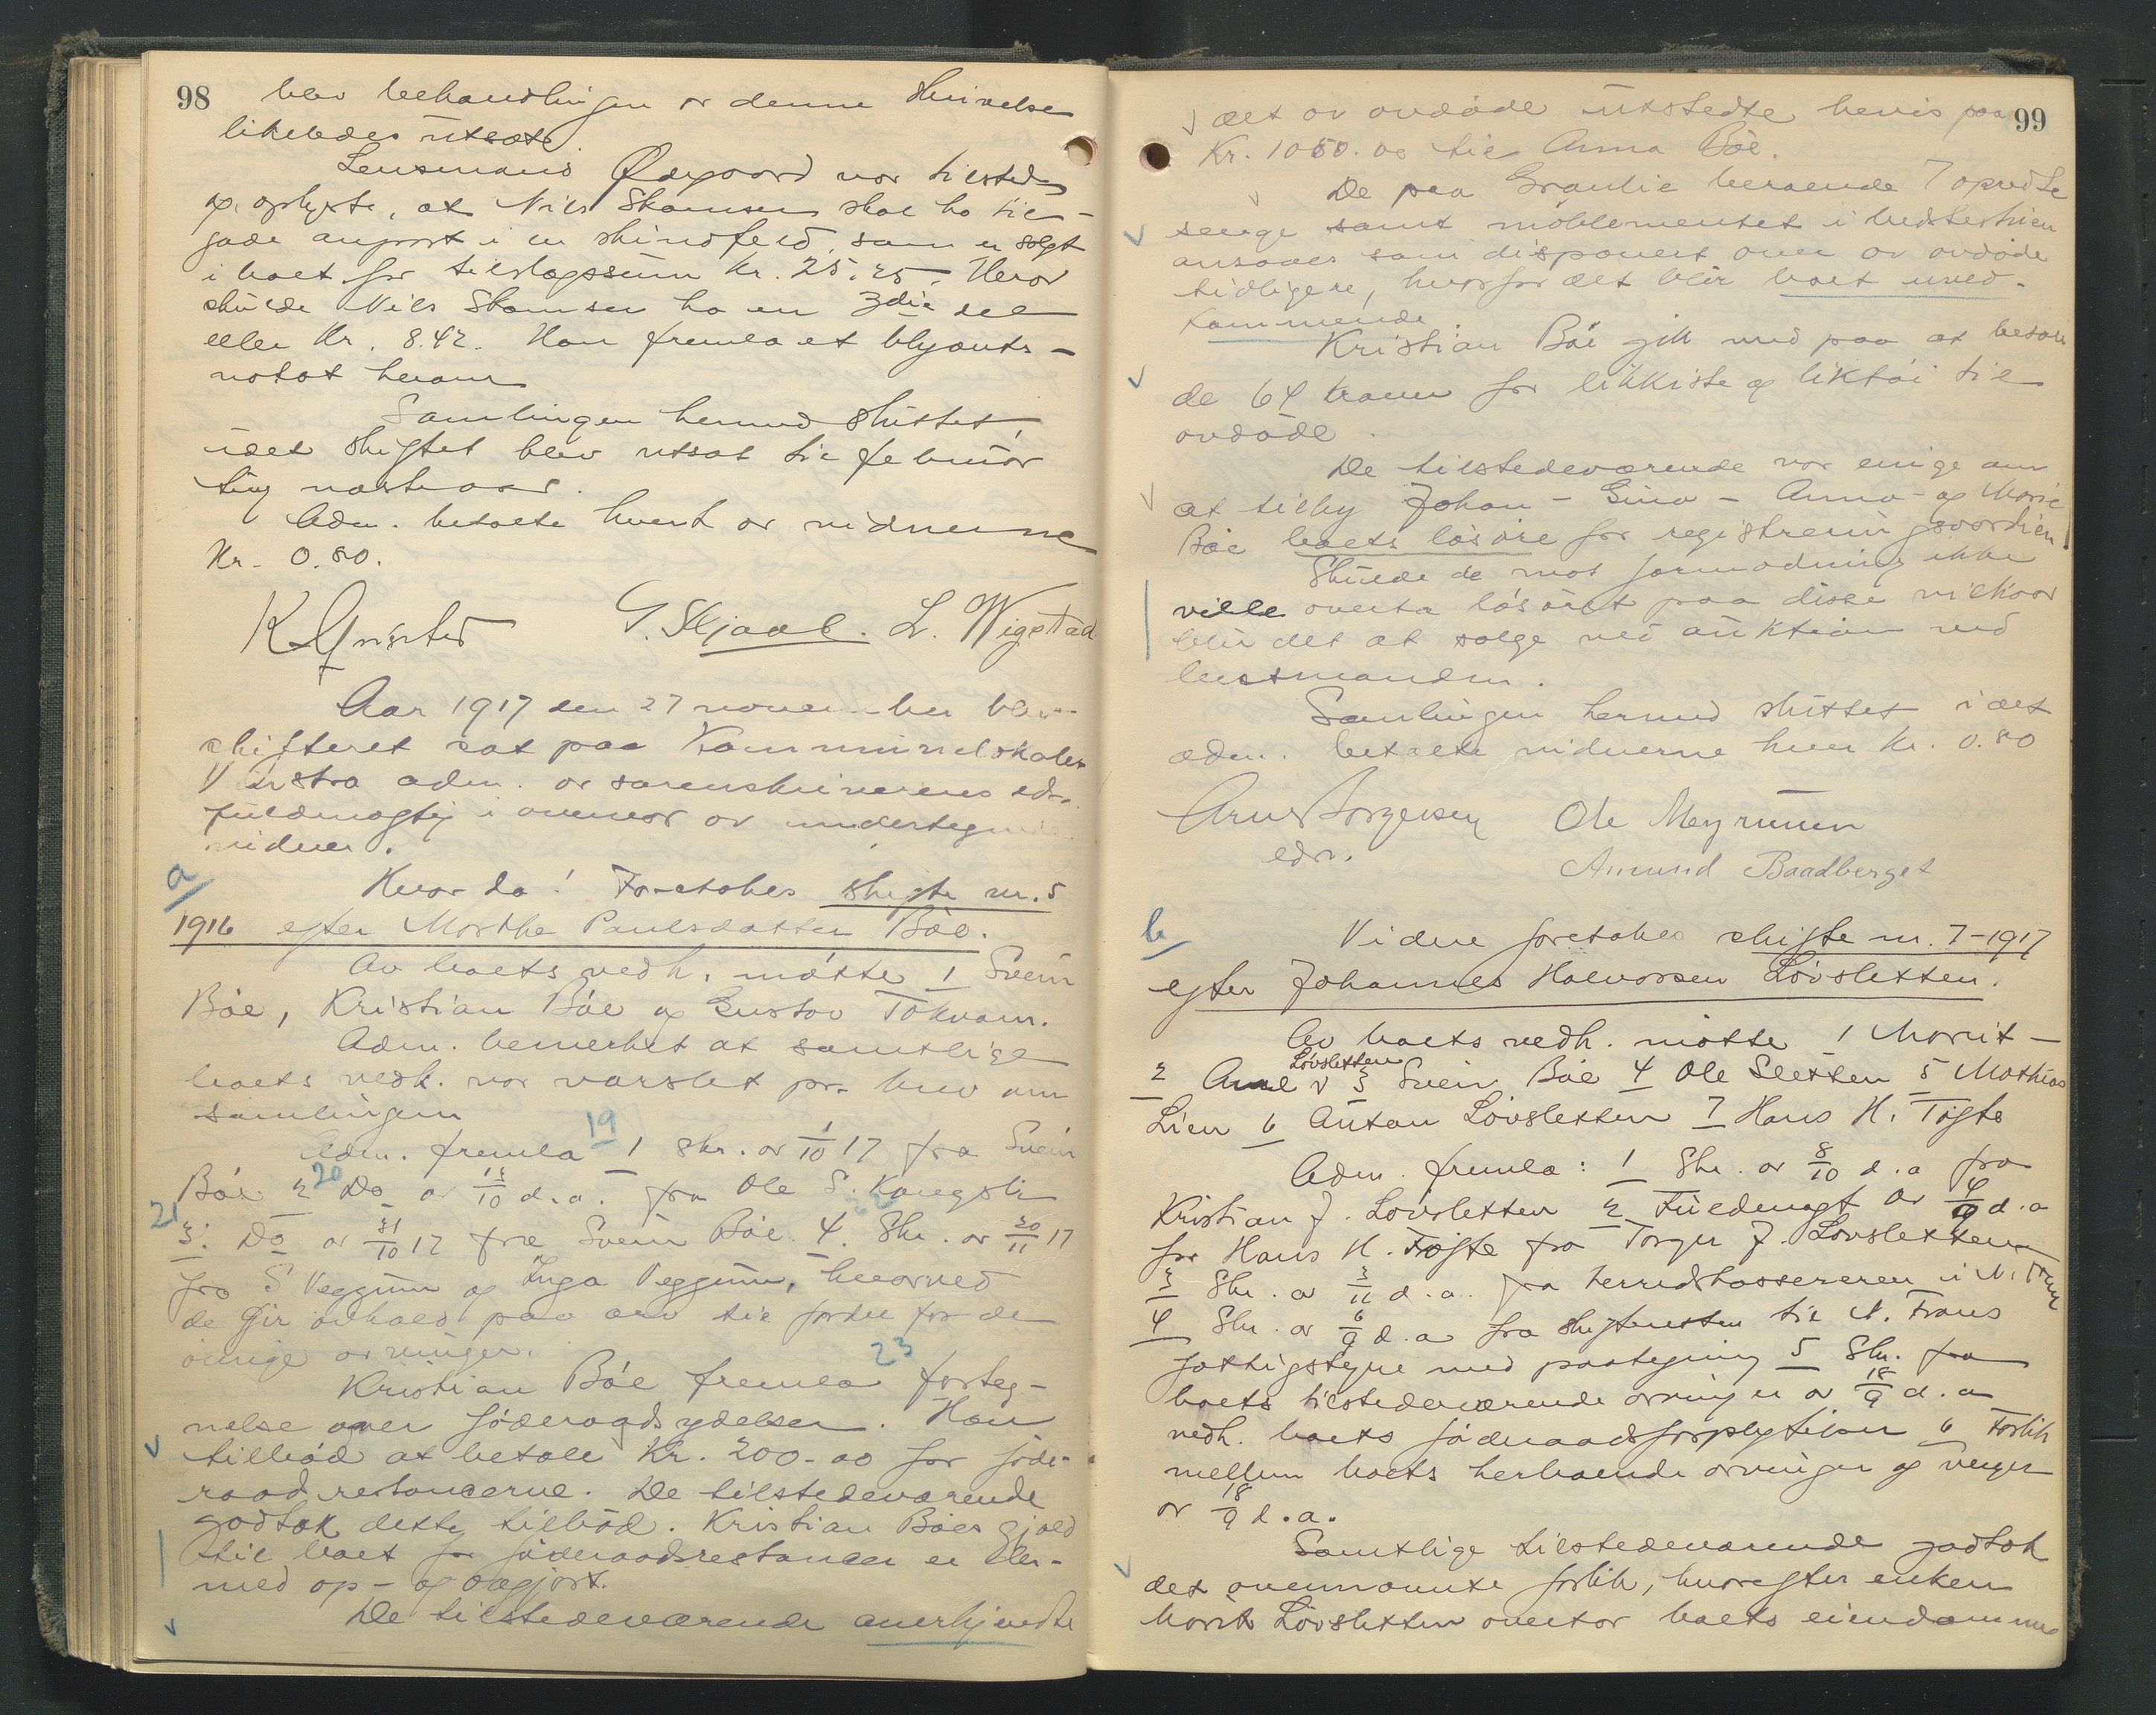 98
blev behandlingen av denne henvelse
likeledes utsatt.
Lensmand Ødegaard var tilstede
og oplyste, at Nils Skomsen skal ha til-
gode anpart i en skindfeld, som er solgt
i boet for tilslagssum kr. 25.25. Herav
skulde Nils Skomsen ha en 3die del
eller Kr. 8.42. Han fremla et blyants-
notat herom
Samlingen hermed sluttet,
idet skiftet blev utsat til februar
ting næste aar.
Adm. betalte hvert av vidnerne
Kr. 0.80.
G. Skjaak. L. Wigstad
Aar 1917 den 27 november blev
skifteret sat paa Kommunelokalet
Vinstra adm. av sorenskriverens eds.
fuldmægtig i overvær av undertegnede
vidner.
a
Hvorda! Foretokes skifte nr. 5
1916 efter Marthe Paulsdatter Bøe.
Av boets vedk. møtte 1 Svein
Bøe, Kristian Bøe og Gustav Tokvam.
Adm. bemerket at samtlige
boets vedk. var varslet pr. brev om
samlingen
19
Adm. fremla 1 skr. av 1/10 17 fra Svein
20
Bøe 2 Do av 13/10 d.a. fra Ole S. Kongsli
21
3. Do av 31/10 17 fra Svein Bøe 4. Skr. av 20/11 17
fra S Veggum og Inga Veggum, hvorved
de gir avkald paa arv til fordel for de
øvrige arvinger.
23
Kristian Bøe fremla forteg-
nelse over føderaadsydelser. Han
tilbød at betale Kr. 200.00 for føde-
raadrestancerne. De tilstedeværende
godtok dette tilbød. Kristian Bøes gjæld
til boet for føderaadsrestancer er der-
med op- og avgjort.
De tilstedeværende anerkjendte
99
det av avdøde utstedte bevis paa
Kr. 1050.00 til Anna Bøe.
De paa Graulie beroende 7 opredte
senge samt møblementet i bedstestuen
ansaaes som disponert over av avdøde
tidligere, hvorfor det blir boet uved-
kommende.
Kristian Bøe gik med paa at betale
de 64 kroner for likkiste og liktøi til
avdøde.
De tilstedeværende var enige om
at tilby Johan - Gina - Anna - og Marie
Bøe boets løsøre for registreringsværdien.
Skulde de mot formodning ikke
ville overta løsøret paa disse vilkaar
blir det at sælge ved auktion ved
lensmanden.
Samlingen hermed sluttet idet
adm. betalte vidnerne hver kr. 0.80
Arne Jørgensen Ole Mægrunen
eds. Amund Baadberget
b
Videre foretokes skifte nr. 7-1917
efter Johannes Halvorsen Løvsletten.
Av boets vedk. møtte 1 Marit -
Løvsletten
2 Anne v 3 Svein Bøe 4 Ole Sletten 5 Mathias
Lien 6 Anton Løvsletten 7 Hans H. Tøfte
Adm. fremla: 1 Skr. av 8/10 d.a fra
Kristian J. Løvsletten 2 Fuldmagt av 4/9 d.a
for Hans H. Tøfte fra Torger J. Løvsletten
3 Skr. av 3/11 d.a. fra herredskassereren i N. Fron
4 Skr. av 6/9 d.a fra skifteretten til N. Frons
fattigstyre med paategning 5 Skr. fra
boets tilstedeværende arvinger av 18/9 d.a
vedk. boets føderaadsforpligtelser 6 Forlik
mellem boets herboende arvinger og verger
av 18/9 d.a.
Samtlige tilstedeværende godtok
det ovennævnte forlik, hvorefter enken
Marit Løvsletten overtar boets eiendomme